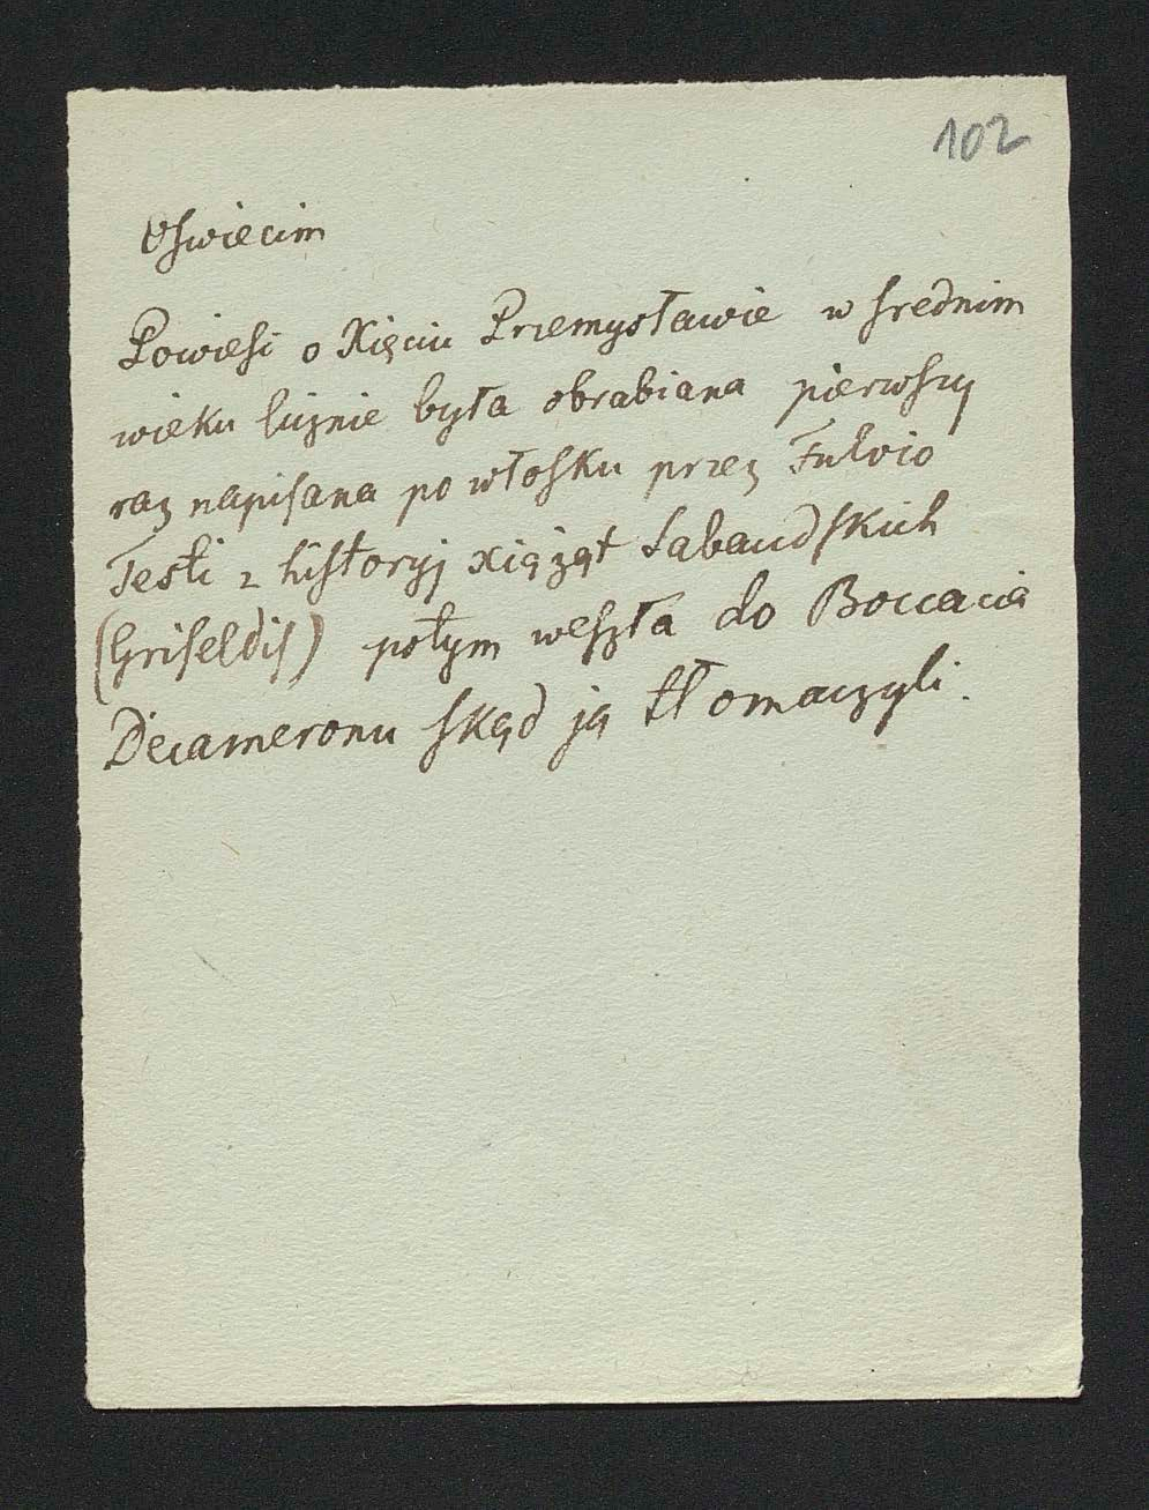 102
Oswiecim
Powiesi o Xięciu Przemysławie w srednim
wieku liznie była obrabiana pierwszy
raz napisana po włosku przez Fulvio
Testi z historyj xiążąt Sabaudskich
(Griseldis) potym weszła do Boccacia
Decameronu skąd ją tłomaczyli.